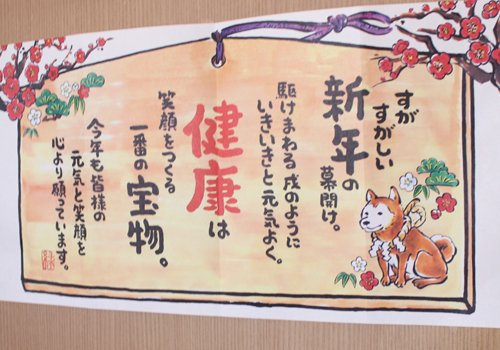 すが
すがしい
新年の
幕開け。
駆けまわる戌のように
いきいきと元気よく。
健康は
笑顔をつくる
一番の宝物。
今年も皆様の
元気と笑顔を
心より願っています。